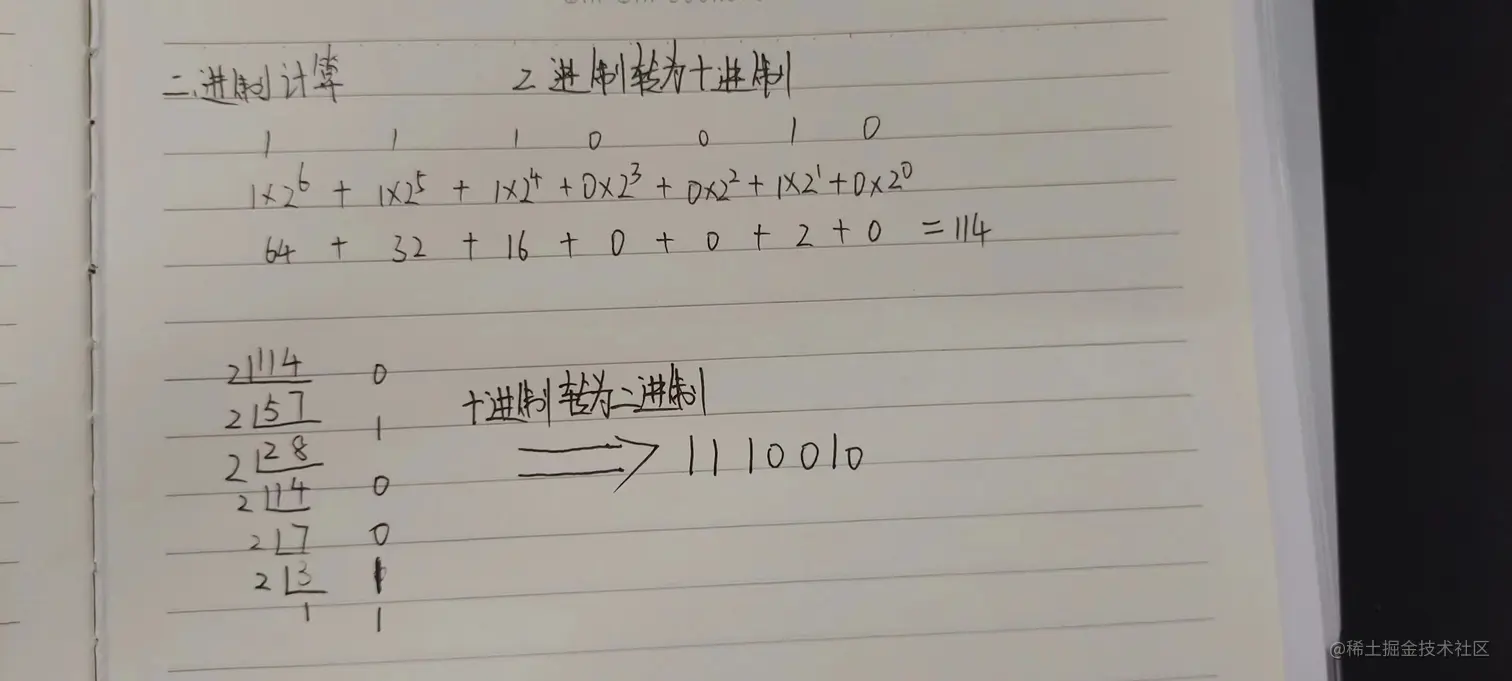 二进制计算 2进制转为十进制
1 1 1 0 0 1 0
1×2⁶ + 1×2⁵ + 1×2⁴ + 0×2³ + 0×2² + 1×2¹ + 0×2⁰
64 + 32 + 16 + 0 + 0 + 2 + 0 = 114
2 114 0
2 57 1
十进制转为二进制
2 28 0
1110010
2 14 0
2 7 1
2 3 1
1
@稀土掘金技术社区